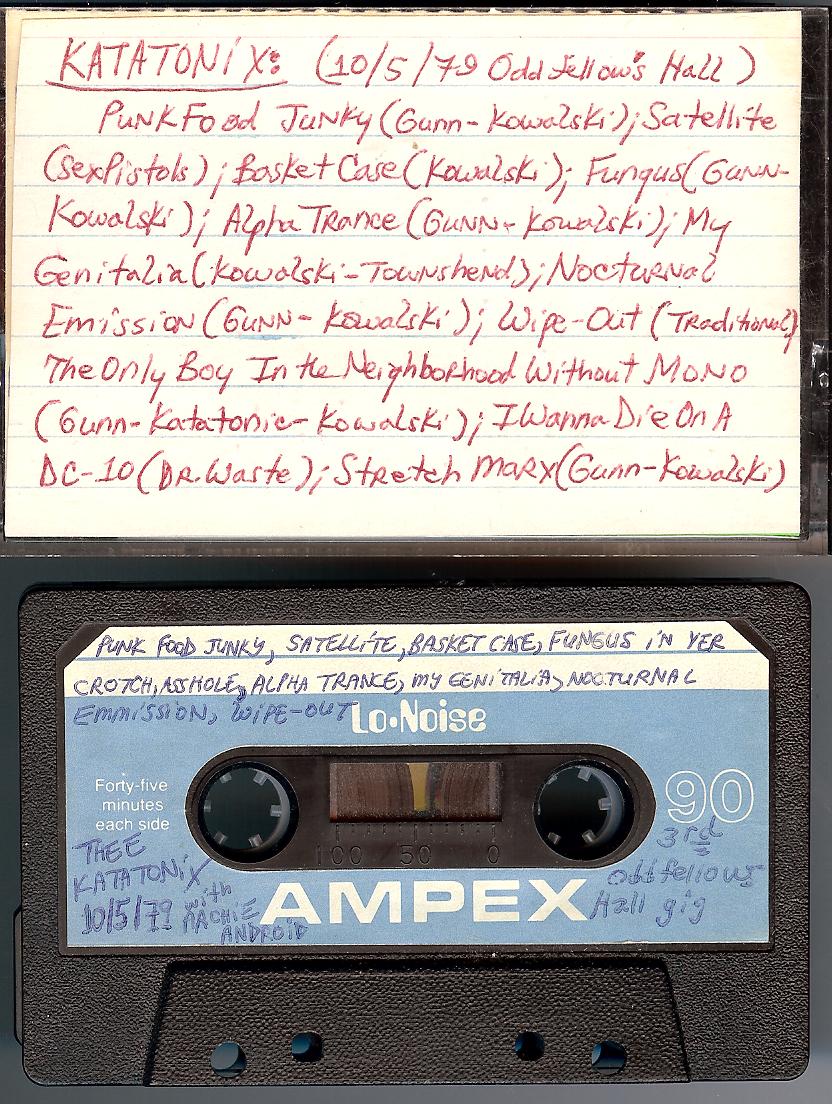 KATATONiX: (10/5/79 Oddfellow's Hall)
PUNK FOOD JUNKY (Gunn-Kowalski); Satellite
(Sex Pistols); Basket Case (Kowalski); Fungus (Gunn-
Kowalski); Alpha Trance (Gunn-Kowalski); My
Genitalia (Kowalski-Townshend); Nocturnal
Emission (Gunn-Kowalski); Wipe-Out (Traditional)
The Only Boy In the Neighborhood Without MONO
(Gunn-Katatonic-Kowalski); I Wanna Die On A
DC-10 (DR. Waste); Stretch Marx (Gunn-Kowalski)
PUNK FOOD JUNKY, SATELLiTE, BASKET CASE, FUNGUS iN YER
CROTCH, ASSHOLE, ALPHA TRANCE, MY GENiTALIA, NOCTURNAL
EMMiSSiON, WiPE-OUT
Lo•Noise
Forty-five
minutes
each side
90
100 50 0
THEE
KATATONiX
10/5/79 with
ANDROiD
3rd
oddfellows
Hall gig
AMPEX